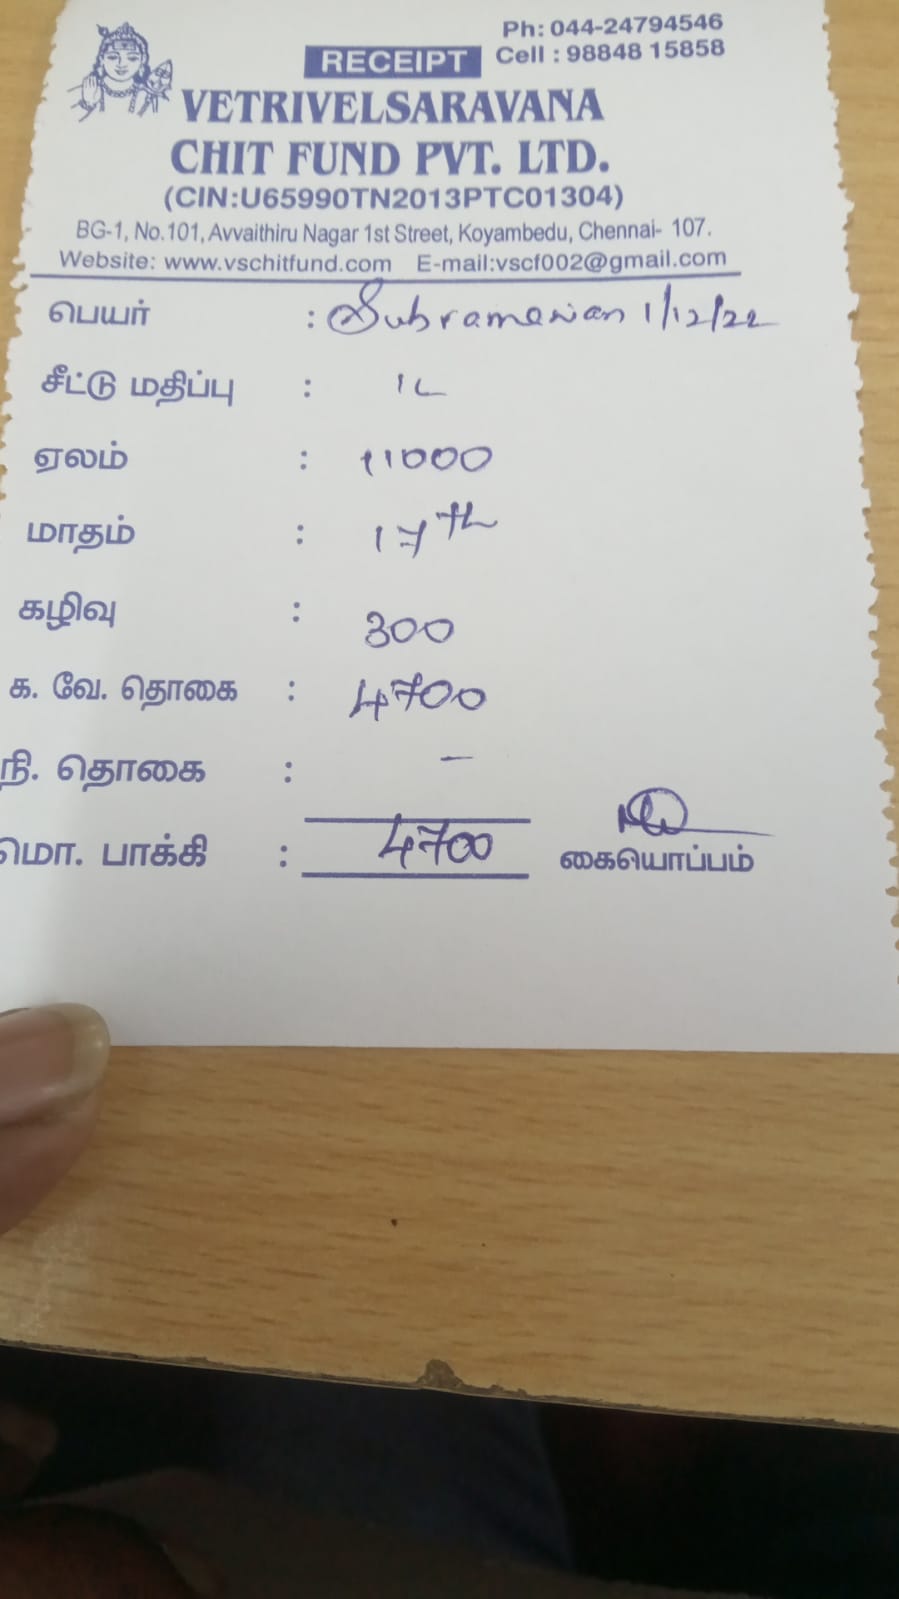 Ph: 044-24794546
RECEIPT Cell : 98848 15858
VETRIVELSARAVANA
CHIT FUND PVT. LTD.
(CIN:U65990TN2013PTC01304)
BG-1, No.101, Avvaithiru Nagar 1st Street, Koyambedu, Chennai- 107.
Website: www.vschitfund.com E-mail:vscf002@gmail.com
பெயர் : Subramanian 1/12/22
சீட்டு மதிப்பு : 1L
ஏலம் : 11000
மாதம் : 17th
கழிவு : 300
க. வே. தொகை : 4700
நி. தொகை : –
மொ. பாக்கி : 4700 கையொப்பம்